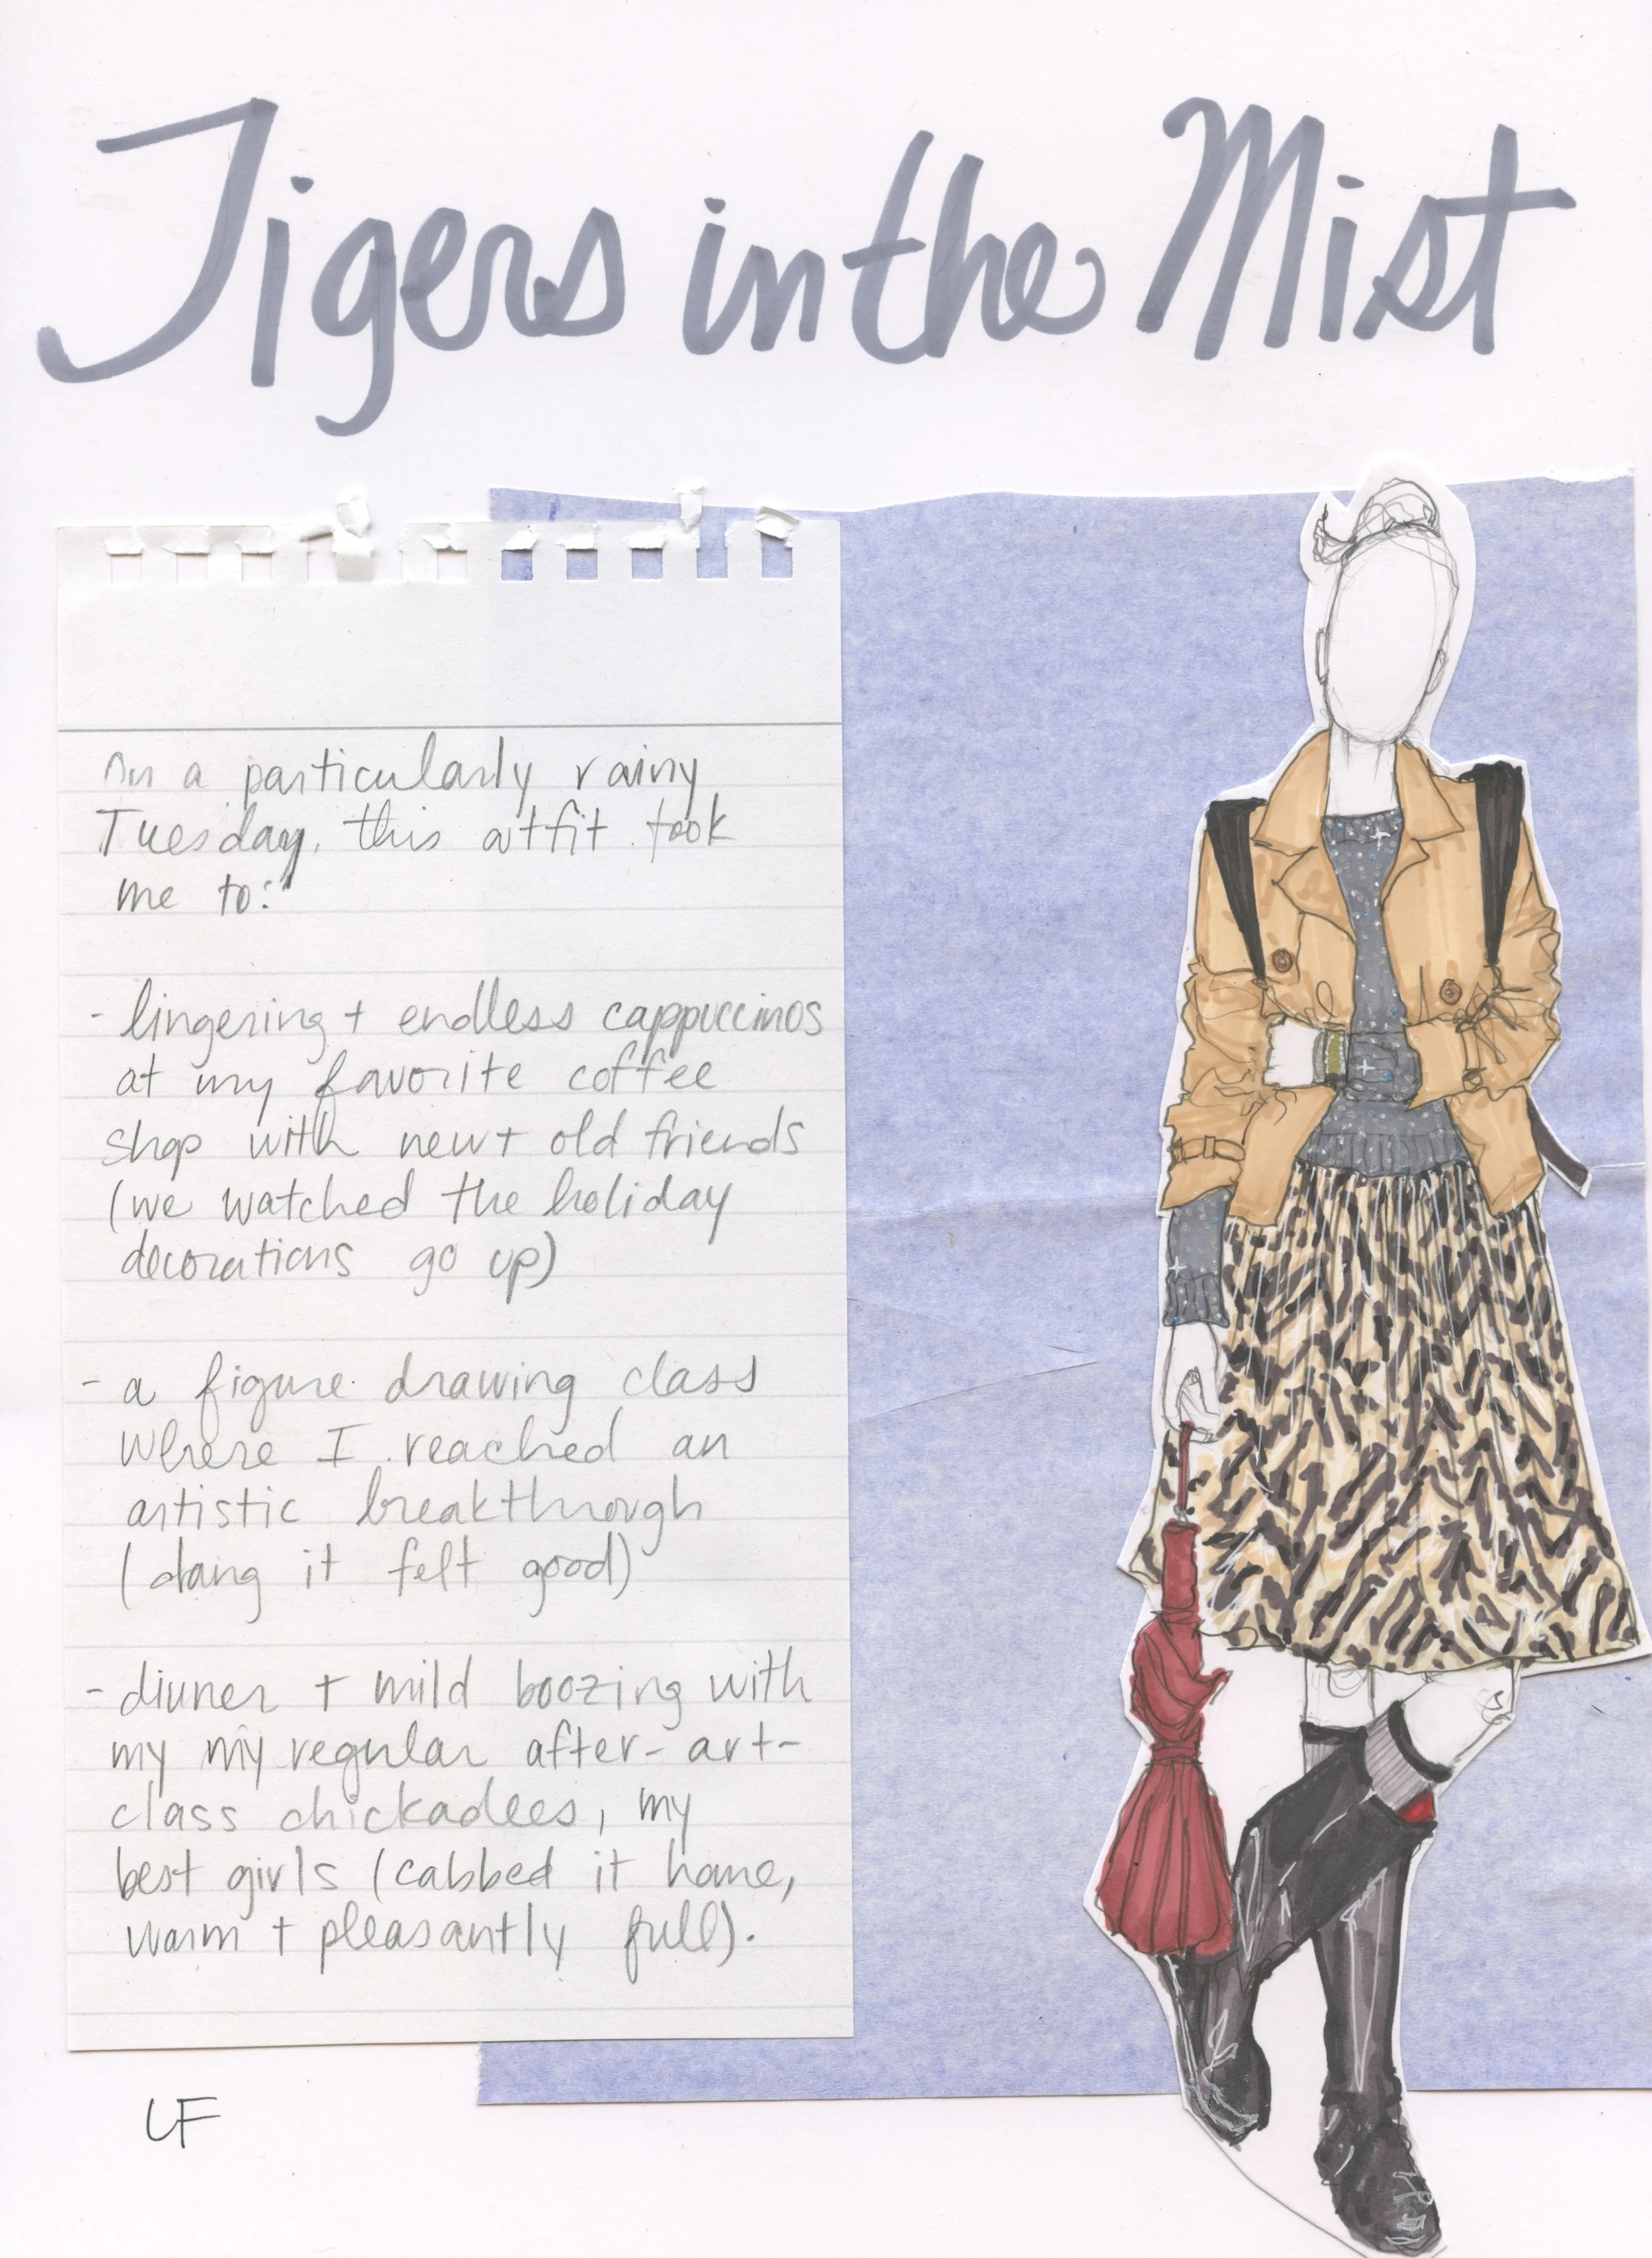 Tigers in the Mist
On a particularly rainy
Tuesday, this outfit took
me to:
- lingering + endless cappuccinos
at my favorite coffee
shop with new + old friends
(we watched the holiday
decorations go up)
- a figure drawing class
where I reached an
artistic breakthrough
(dang it felt good)
- dinner + mild boozing with
my my regular after-art-
class chickadees, my
best girls (cabbed it home,
warm + pleasantly full).
LF